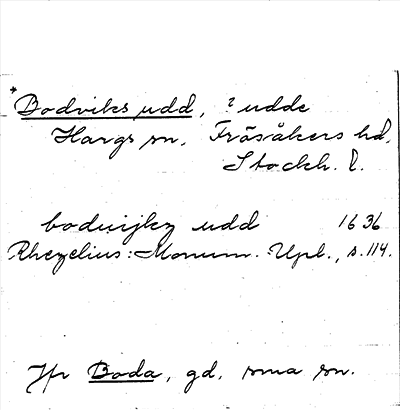 * Bodviks udd, ? udde
Hargs sn. Frösåkers hd.
Stockh. l.
boduijkz udd 1636
Rhezelius: Monum. Upl., s. 114.
Jfr Boda, gd, sma sn.